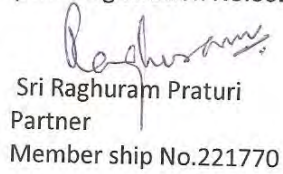 Raghuram
Sri Raghuram Praturi
Partner
Member ship No.221770